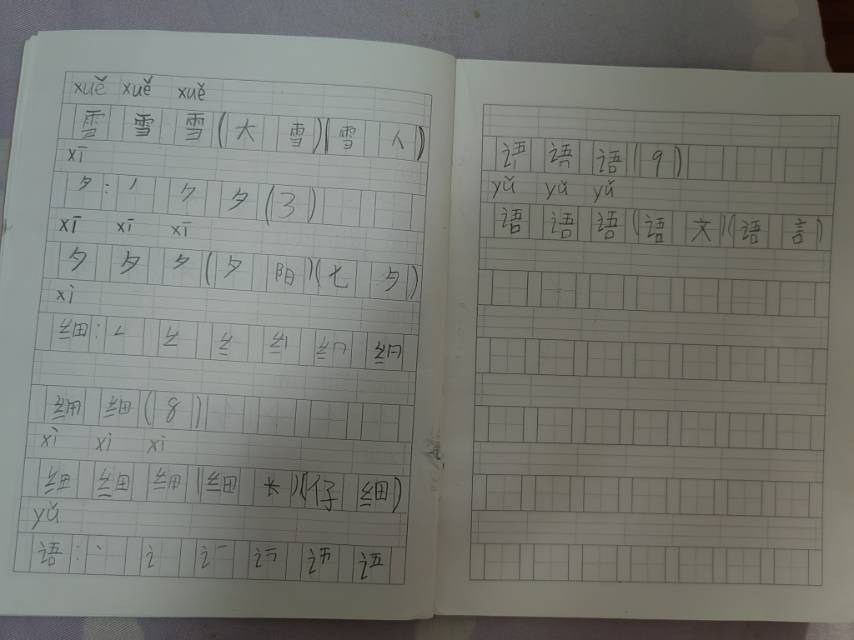 xuě xuě xuě
雪 雪 雪 (大 雪) (雪 人)
xī
夕: 丿 ク 夕 (3)
xī xī xī
夕 夕 夕 (夕 阳) (七 夕)
xì
细: 纟
细 细 (8)
xì xì xì
细 细 细 (细 长) (仔 细)
yǔ
语: 丶 讠
语 (9)
yǔ yǔ yǔ
语 语 语 (语 文) (语 言)